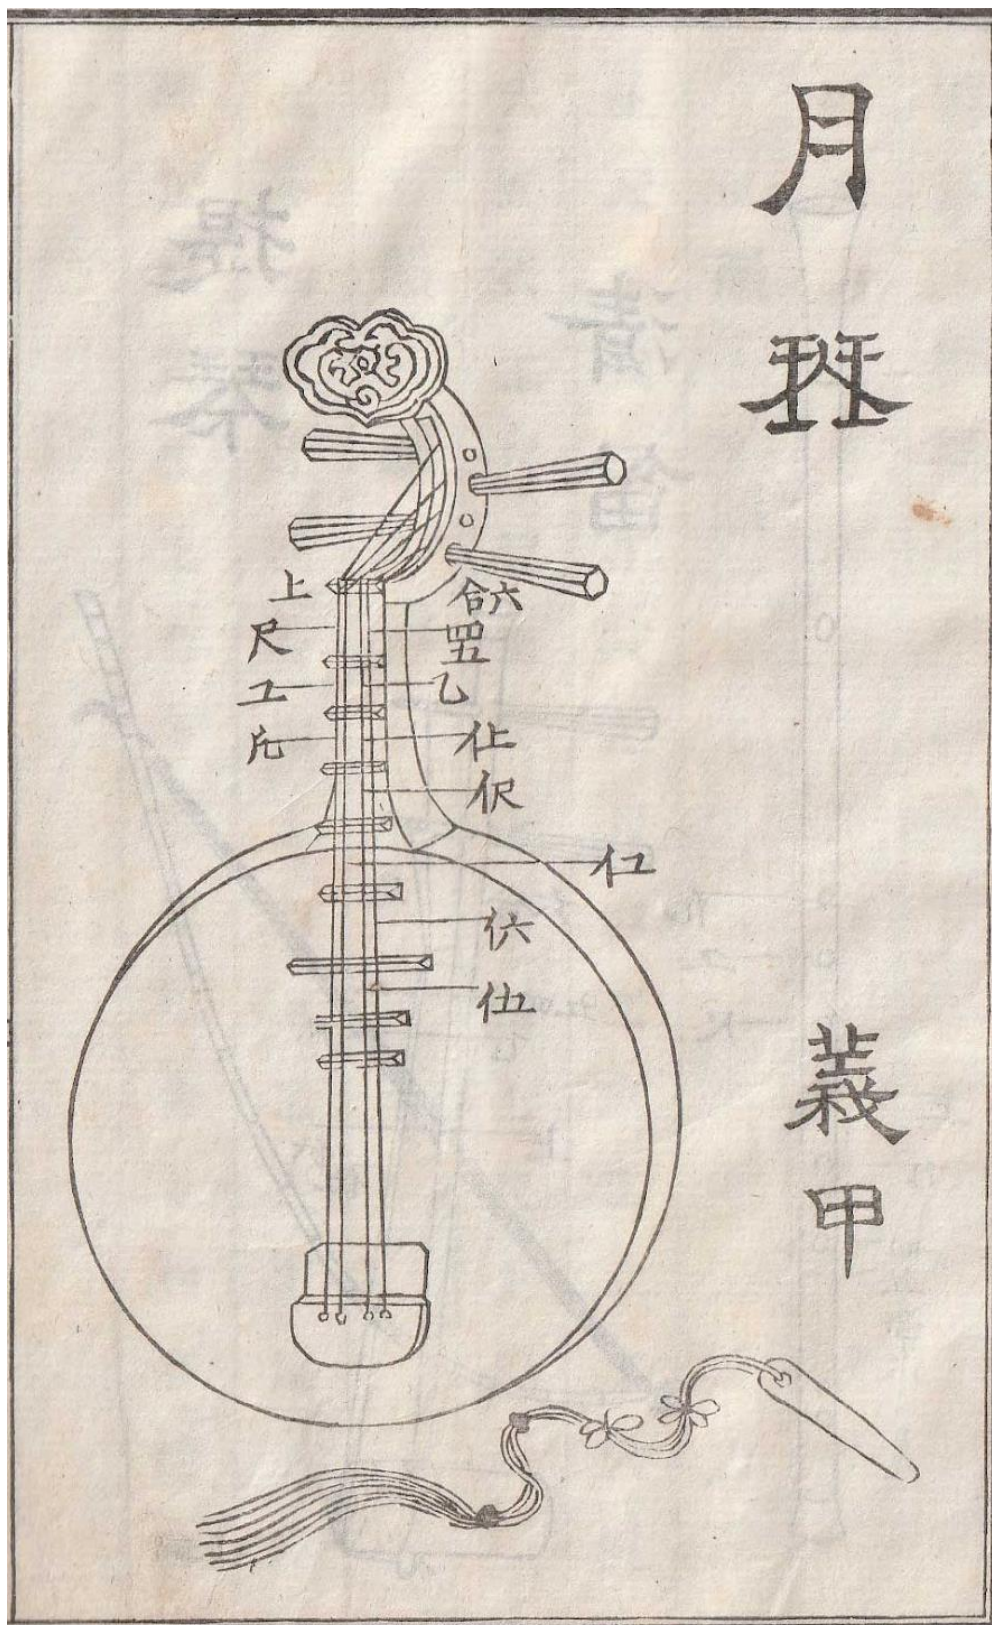 月
珡
義
甲
上
尺
工
凡
合六
四五
乙
仩
伬
仜
𠆾
伍